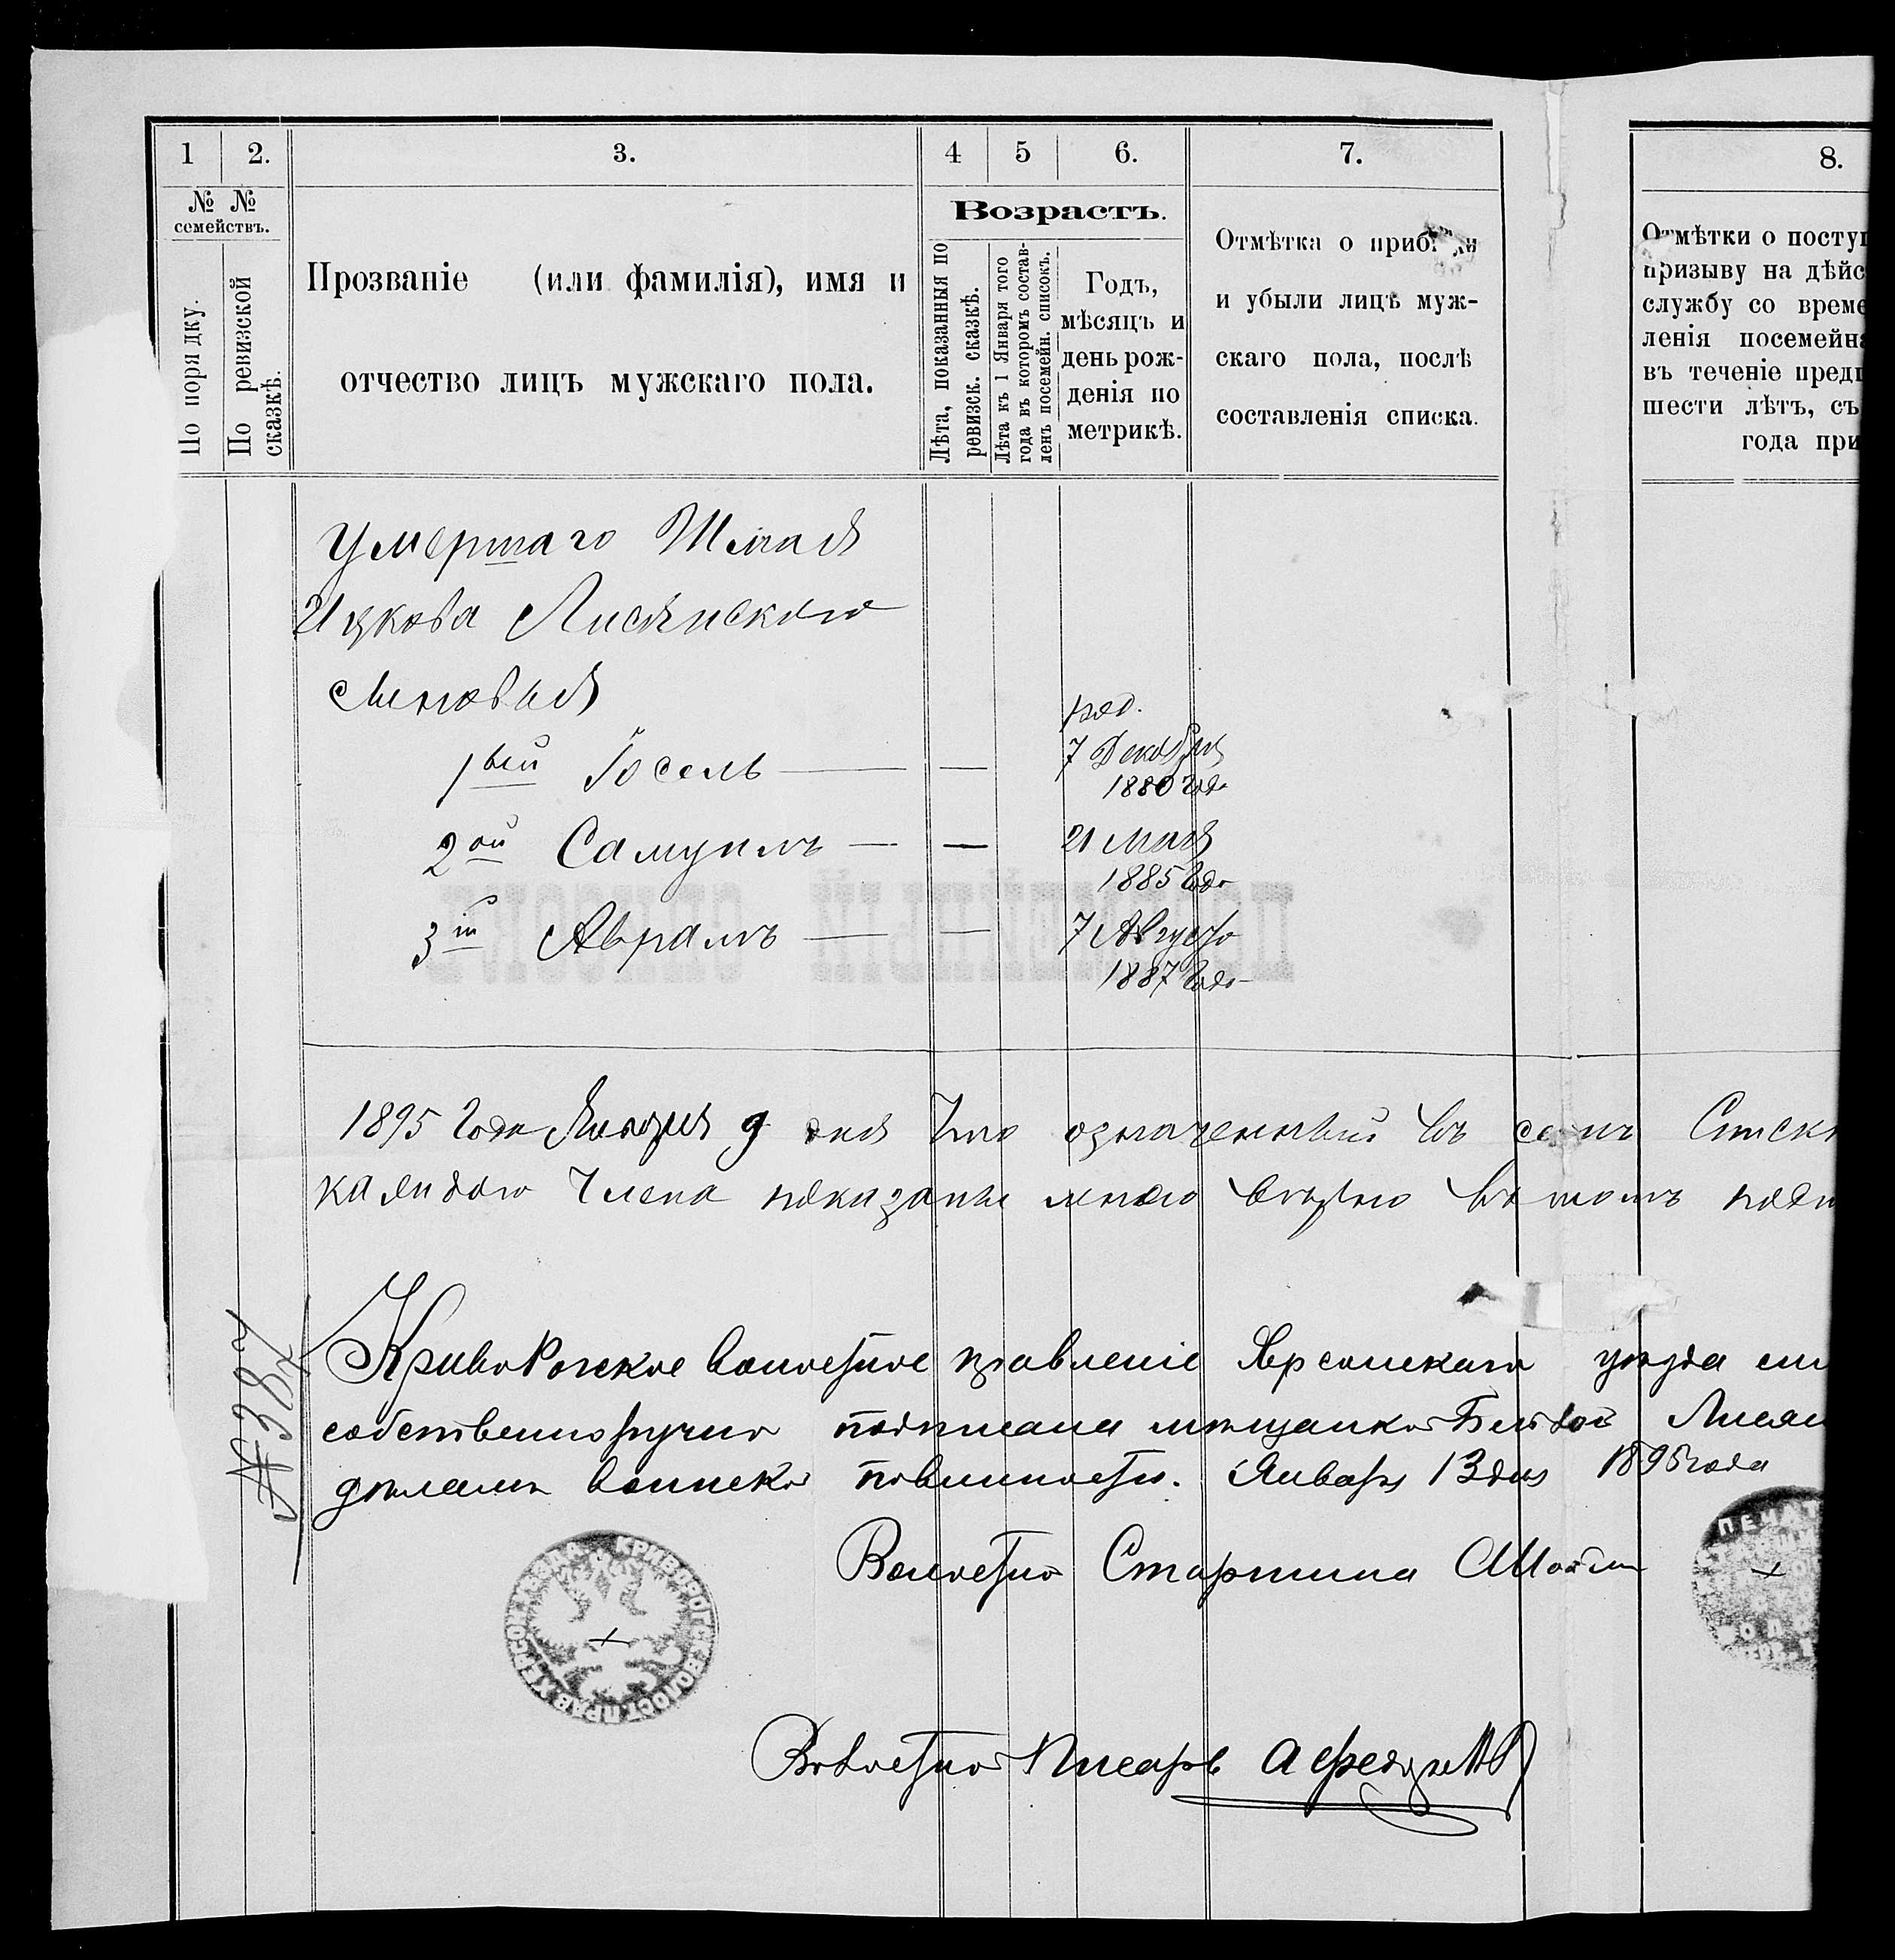 1 2. 3. 4 5 6. 7. 8.
№ № семействъ.
По порядку.
По ревизской сказкѣ.
Прозваніе (или фамилія), имя и
отчество лицъ мужскаго пола.
Возрастъ.
Лѣта, показанныя по
ревизск. сказкѣ.
Лѣта къ 1 Января того
года въ которомъ состав-
ленъ посемейн. списокъ.
Годъ,
мѣсяцъ и
день рож-
денія по
метрикѣ.
Отмѣтка о прибыли
и убыли лицъ муж-
скаго пола, послѣ
составленія списка.
Отмѣтки о посту
призыву на дѣйс
службу со време
ленія посемейна
въ теченіе пред
шести лѣтъ, съ
года при
Умершаго
Ицкова Лисянскаго
сыновья
род.
1вый Іосель — — 7 Декабря
1880 года
2ой Самуилъ — — 21 Мая
1885 года
3ій Аврамъ — — 7 Августа
1887 года
1895 Года Января 9 дня Что означенный въ семъ
каждаго Члена показаны мною вѣрно въ томъ
№ 384
КривоРогское волостное правленіе Херсонскаго уѣзда
собственноручно подписана мѣщанкой
дѣламъ воинской повинности. Января 13 дня 1895 года
Волостной Старшина
КРИВОРОГСК ВОЛОСТ ПРАВ ХЕРСОН УѢЗДА
ПЕЧАТ
Волостной Писарь